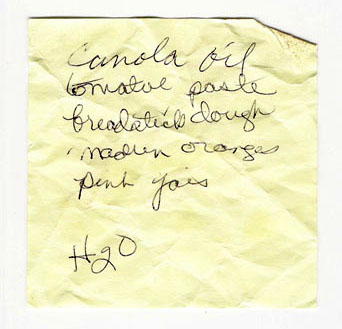 Canola oil
tomatoe paste
breadstick dough
oranges
pink
H2O